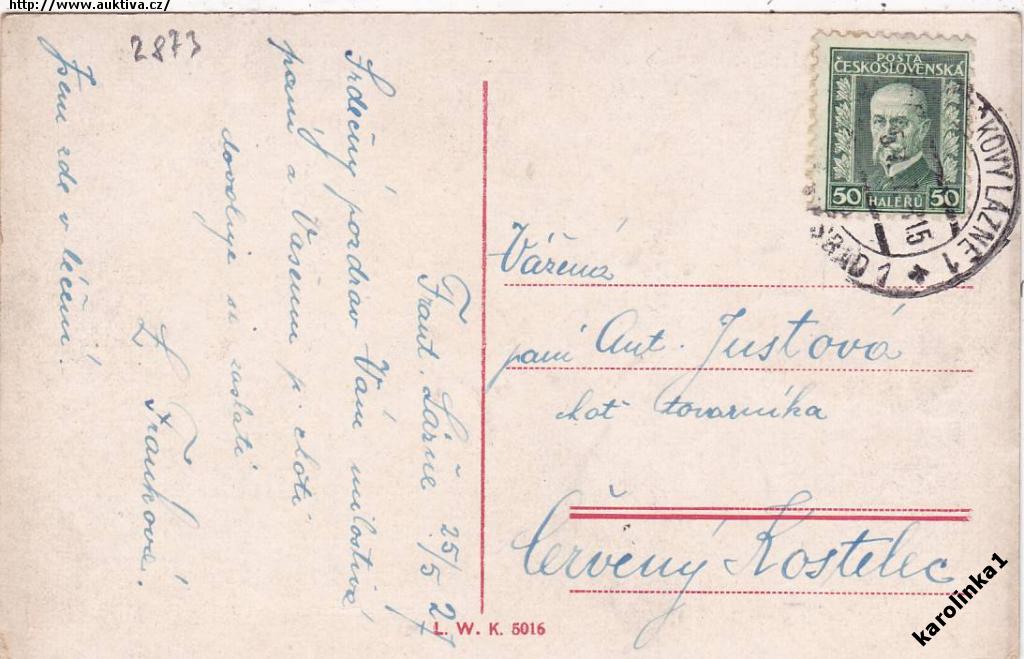 http://www.auktiva.cz/
2873
Frant. Lázně 25/5 27
Srdečný pozdrav Vám milostivá
paní a Vašemu p. choti
dovoluje si zaslati
Z. Franková.
Jsem zde v léčení!
POŠTA
ČESKOSLOVENSKÁ
50 HALÉŘŮ 50
KOVY LÁZNĚ 1
Vážená
paní Ant. Justová
choť továrníka
Červený Kostelec
L. W. K. 5016
karolinka1